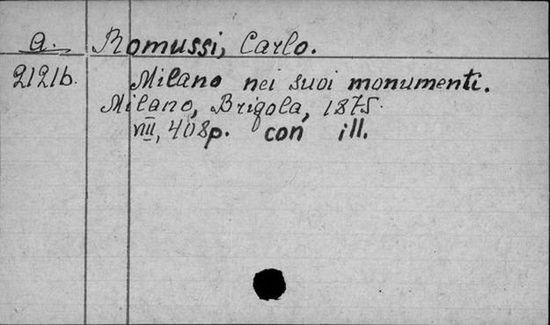 a. Romussi, Carlo.
2121b. Milano nei suoi monumenti.
Milano, Brigola, 1875.
VIII, 408p. con ill.